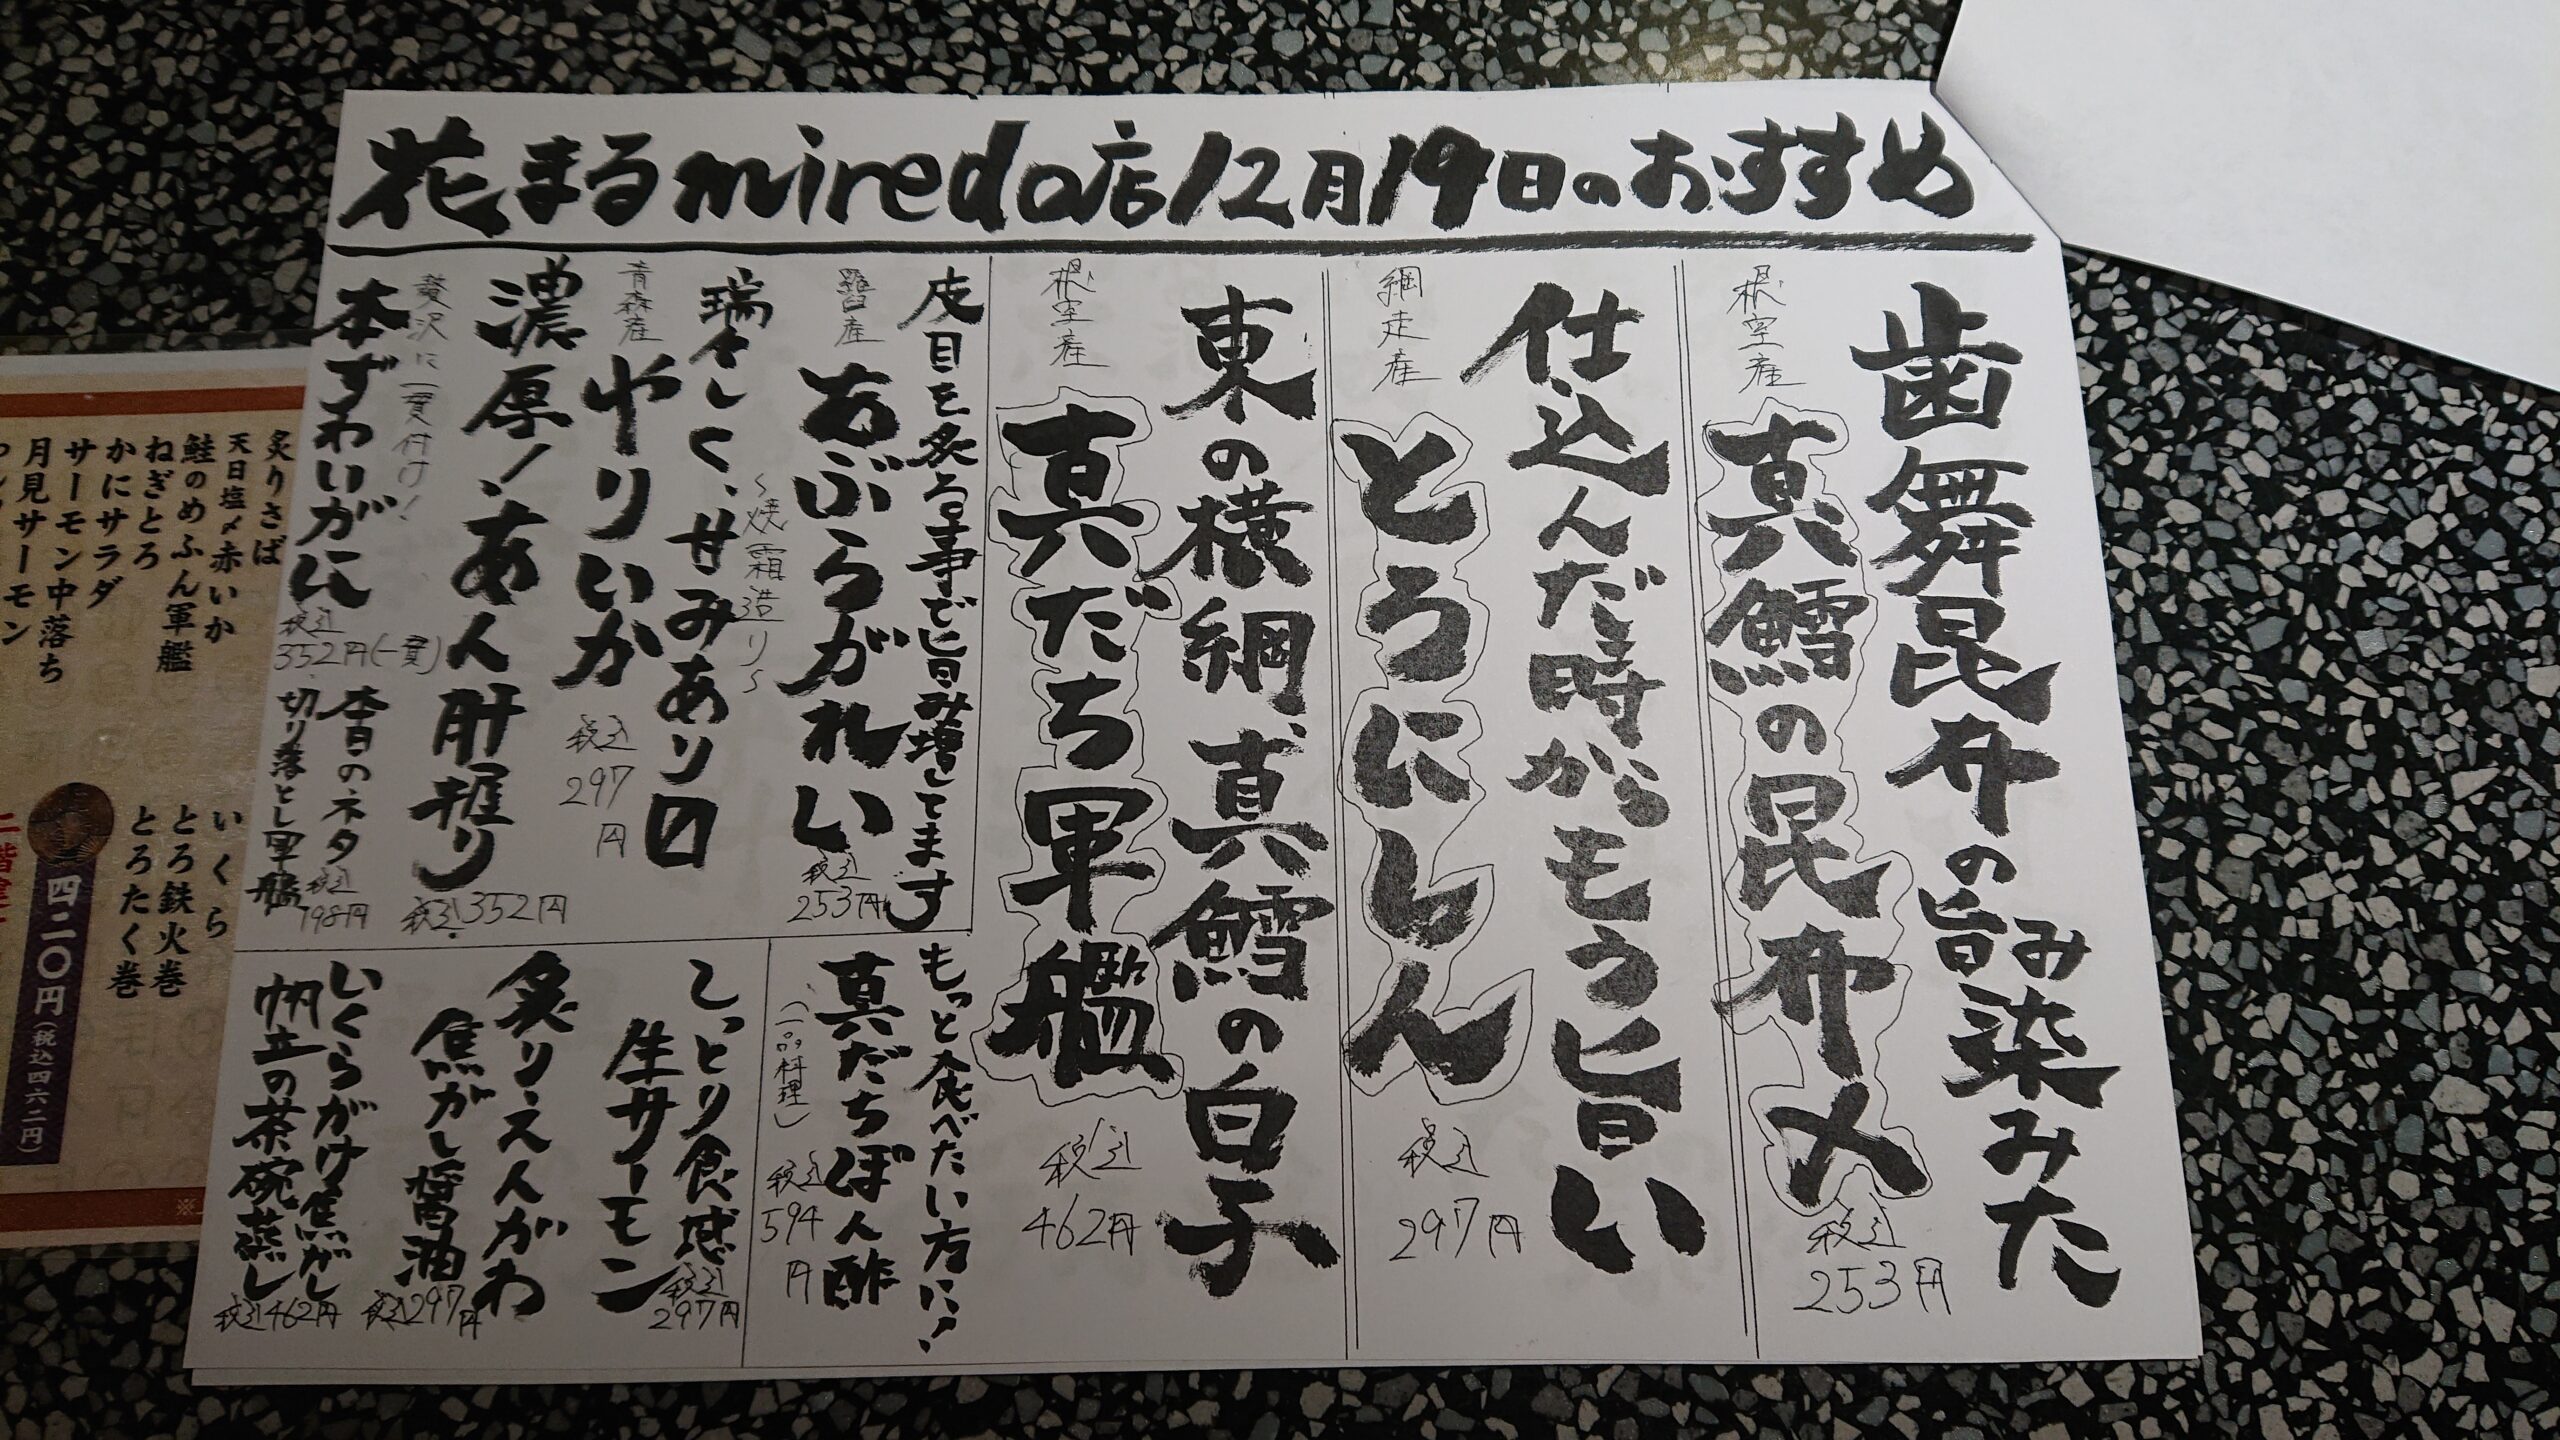 花まるmiredo店12月19日のおすすめ
歯舞昆布の旨み染みた
根室産
真鱈の昆布〆
税込
253円
仕込んだ時からもう旨い
網走産
とろにしん
税込
297円
東の横綱、真鱈の白子
根室産
真だち軍艦
税込
462円
皮目を炙る事で旨み増してます
羅臼産
あぶらがれい
〜焼霜造り〜
税込
253円
瑞々しく、甘みあり〼
青森産
やりいか
税込
297
円
濃厚!あん肝握り
税込352円
贅沢に一貫付け!
本ずわいがに
税込
352円(一貫)
本日のネタ
切り落とし軍艦
税込
198円
もっと食べたい方に!
真だちぽん酢
(一品料理)
税込
594
円
しっとり食感
生サーモン
税込
297円
炙りえんがわ
焦がし醤油
税込297円
いくらがけ焦がし
帆立の茶碗蒸し
税込462円
炙りさば
天日塩〆赤いか
鮭のめふん軍艦
ねぎとろ
かにサラダ
サーモン中落ち
月見サーモン
いくら
とろ鉄火巻
とろたく巻
四二〇円(税込四六二円)